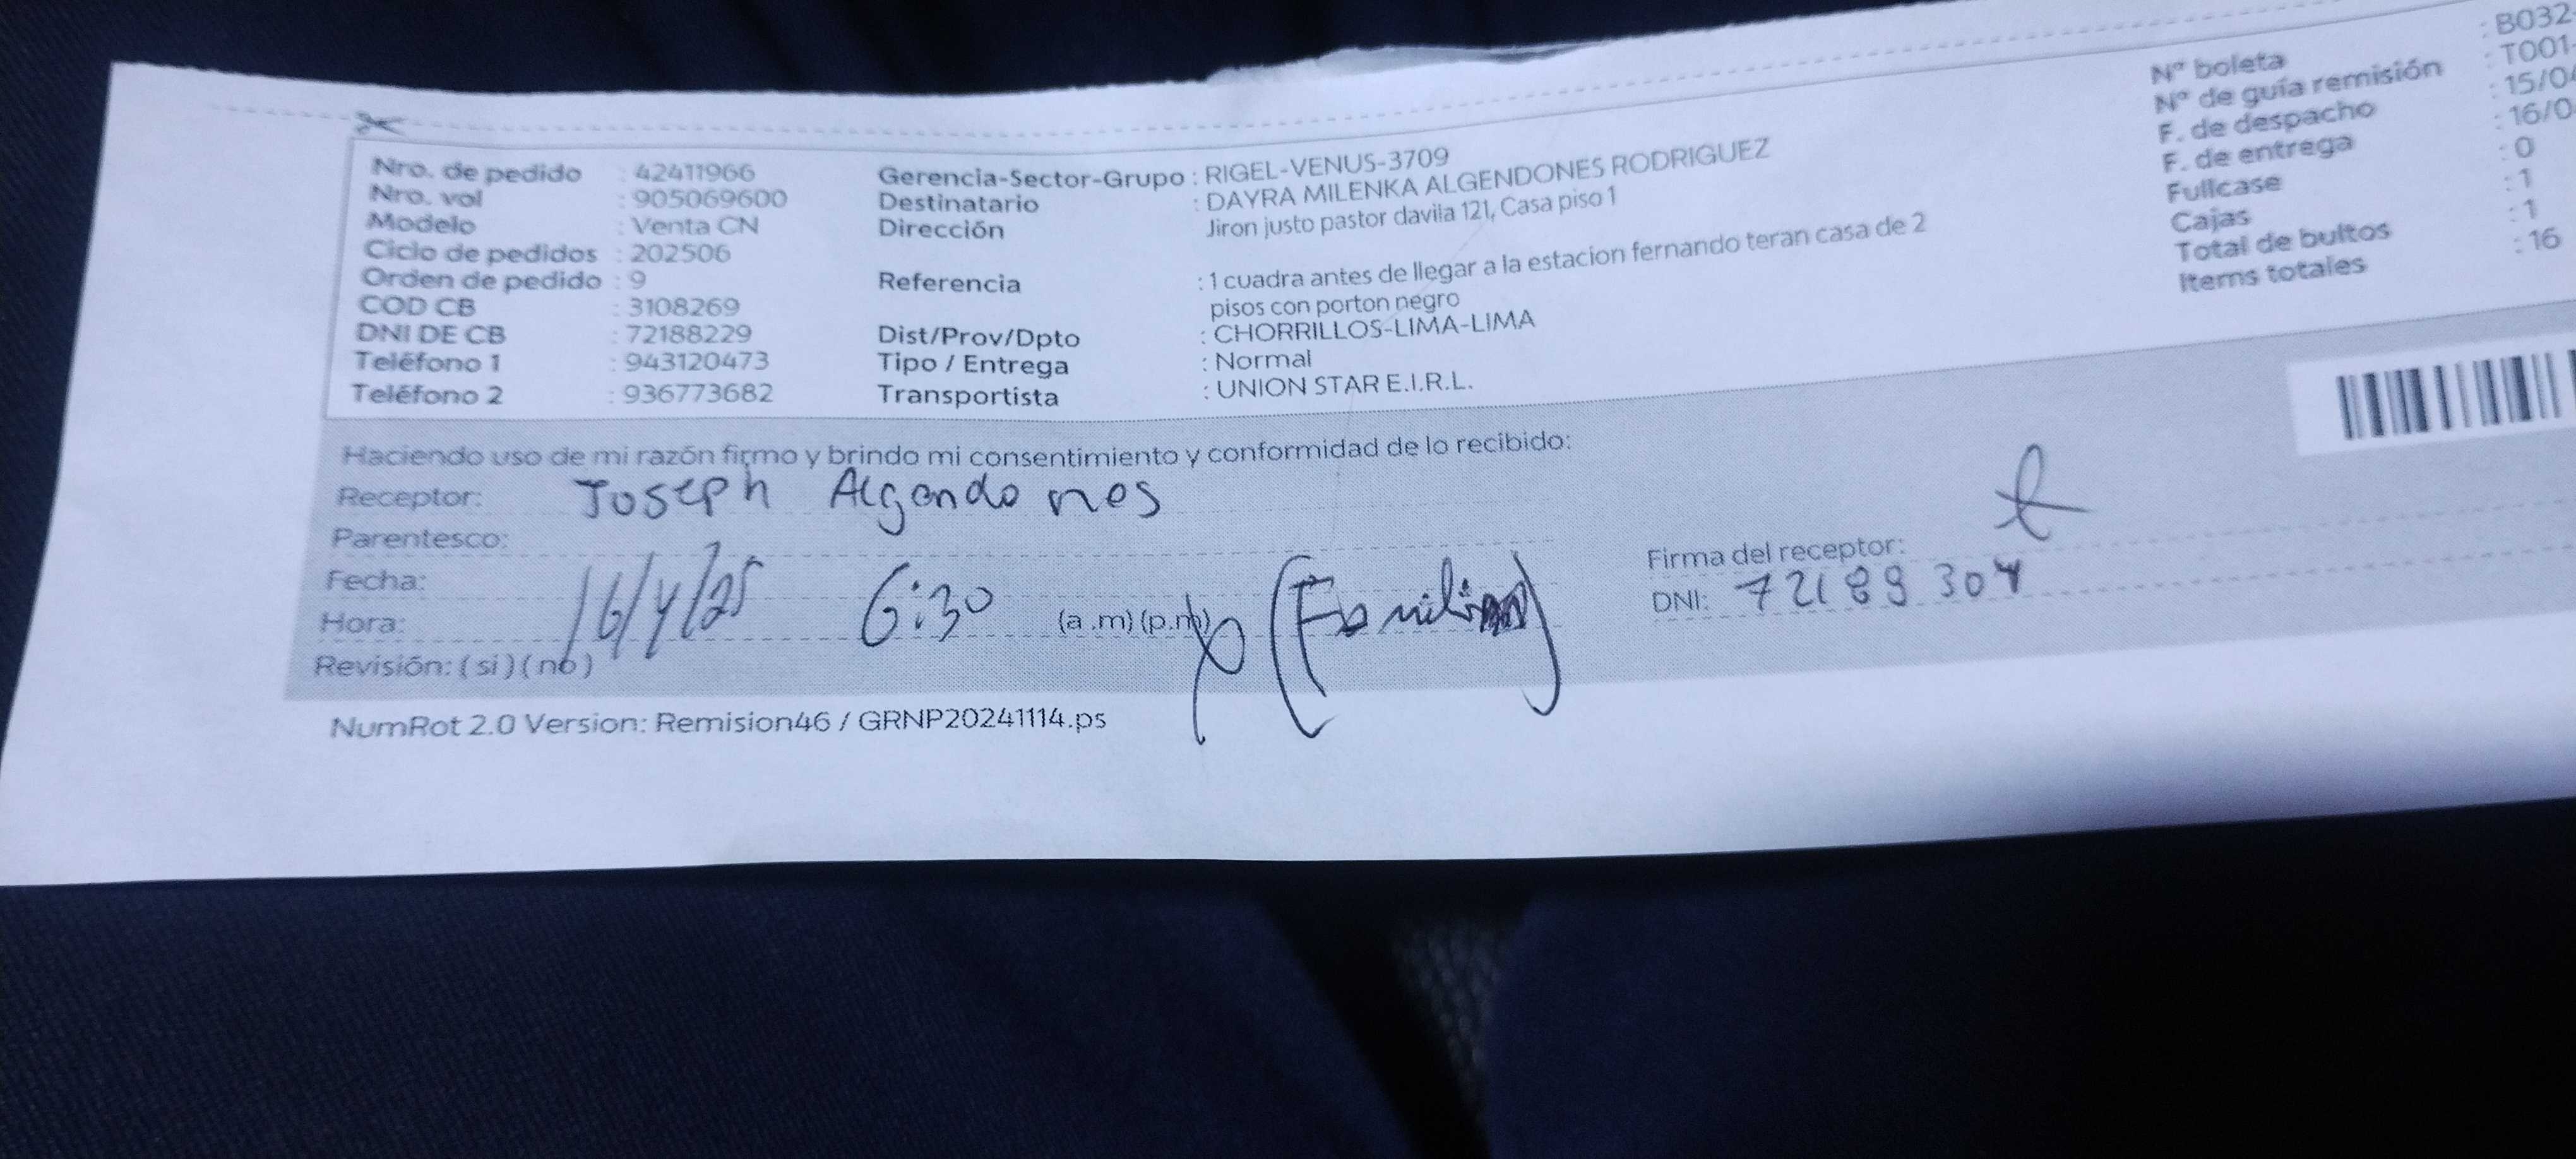 Nro. de pedido : 42411966
Nro. vol : 905069600
Modelo : Venta CN
Ciclo de pedidos : 202506
Orden de pedido : 9
COD CB : 3108269
DNI DE CB : 72188229
Teléfono 1 : 943120473
Teléfono 2 : 936773682
Gerencia-Sector-Grupo : RIGEL-VENUS-3709
Destinatario : DAYRA MILENKA ALGENDONES RODRIGUEZ
Dirección Jiron justo pastor davila 121, Casa piso 1
Referencia : 1 cuadra antes de llegar a la estacion fernando teran casa de 2
pisos con porton negro
Dist/Prov/Dpto : CHORRILLOS-LIMA-LIMA
Tipo / Entrega : Normal
Transportista : UNION STAR E.I.R.L.
Nº boleta : B032-
Nº de guía remisión : T001-
F. de despacho : 15/04
F. de entrega : 16/0
Fullcase : 0
Cajas : 1
Total de bultos : 1
Items totales : 16
Haciendo uso de mi razón firmo y brindo mi consentimiento y conformidad de lo recibido:
Receptor: Joseph Algendones
Parentesco:
Fecha: 16/4/25
Hora: 6:30 (a .m) (p.m)
Revisión: ( si ) ( no )
Firma del receptor:
DNI: 72189304
NumRot 2.0 Version: Remision46 / GRNP20241114.ps